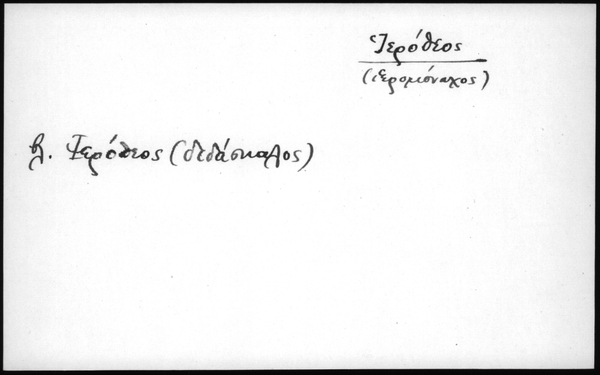 Ἱερόθεος
(ἱερομόναχος)
βλ. Ἱερόθεος (διδάσκαλος)